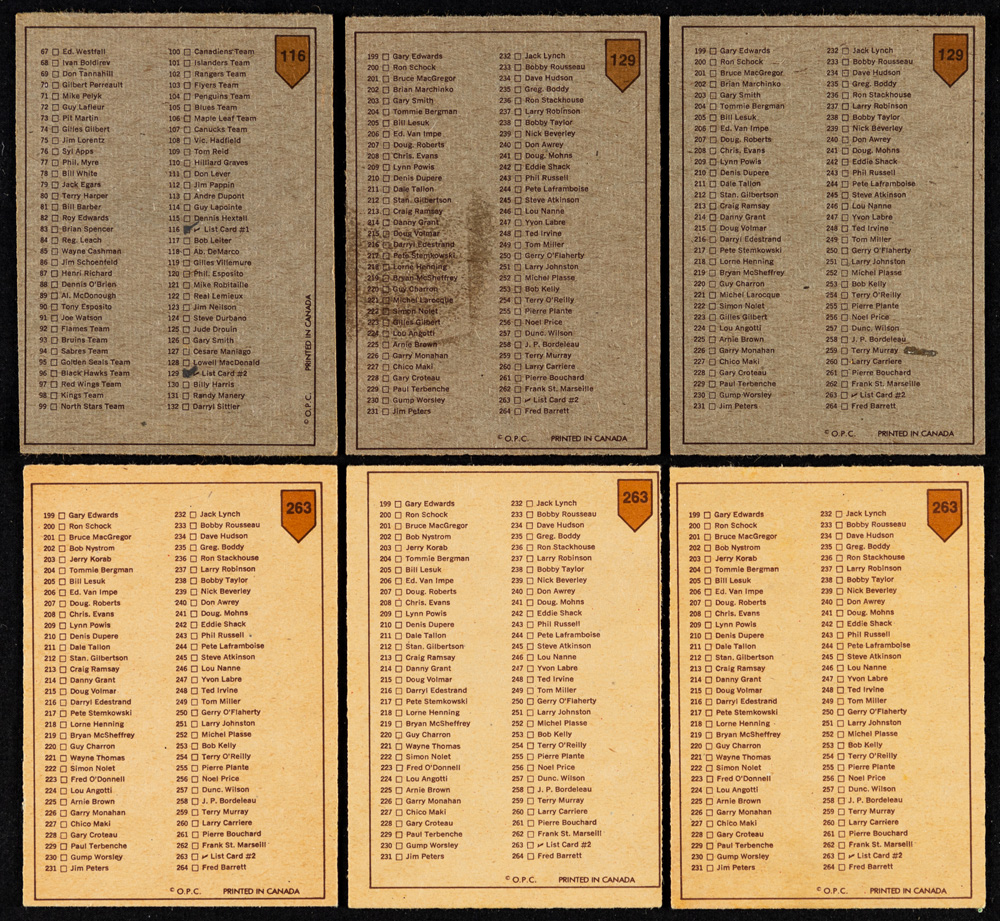 116
67 Ed. Westfall
68 Ivan Boldirev
69 Don Tannahill
70 Gilbert Perreault
71 Mike Pelyk
72 Guy Lafleur
73 Pit Martin
74 Gilles Gilbert
75 Jim Lorentz
76 Syl Apps
77 Phil. Myre
78 Bill White
79 Jack Egars
80 Terry Harper
81 Bill Barber
82 Roy Edwards
83 Brian Spencer
84 Reg. Leach
85 Wayne Cashman
86 Jim Schoenfeld
87 Henri Richard
88 Dennis O'Brien
89 Al. McDonough
90 Tony Esposito
91 Joe Watson
92 Flames Team
93 Bruins Team
94 Sabres Team
95 Golden Seals Team
96 Black Hawks Team
97 Red Wings Team
98 Kings Team
99 North Stars Team
100 Canadiens Team
101 Islanders Team
102 Rangers Team
103 Flyers Team
104 Penguins Team
105 Blues Team
106 Maple Leaf Team
107 Canucks Team
108 Vic. Hadfield
109 Tom Reid
110 Hilliard Graves
111 Don Lever
112 Jim Pappin
113 Andre Dupont
114 Guy Lapointe
115 Dennis Hextall
116 List Card #1
117 Bob Leiter
118 Ab. DeMarco
119 Gilles Villemure
120 Phil. Esposito
121 Mike Robitaille
122 Real Lemieux
123 Jim Neilson
124 Steve Durbano
125 Jude Drouin
126 Gary Smith
127 Cesare Maniago
128 Lowell MacDonald
129 List Card #2
130 Billy Harris
131 Randy Manery
132 Darryl Sittler
© O.P.C. PRINTED IN CANADA
129
199 Gary Edwards
200 Ron Schock
201 Bruce MacGregor
202 Brian Marchinko
203 Gary Smith
204 Tommie Bergman
205 Bill Lesuk
206 Ed. Van Impe
207 Doug. Roberts
208 Chris. Evans
209 Lynn Powis
210 Denis Dupere
211 Dale Tallon
212 Stan. Gilbertson
213 Craig Ramsay
214 Danny Grant
215 Doug Volmar
216 Darryl Edestrand
217 Pete Stemkowski
218 Lorne Henning
219 Bryan McSheffrey
220 Guy Charron
221 Michel Larocque
222 Simon Nolet
223 Gilles Gilbert
224 Lou Angotti
225 Arnie Brown
226 Garry Monahan
227 Chico Maki
228 Gary Croteau
229 Paul Terbenche
230 Gump Worsley
231 Jim Peters
232 Jack Lynch
233 Bobby Rousseau
234 Dave Hudson
235 Greg. Boddy
236 Ron Stackhouse
237 Larry Robinson
238 Bobby Taylor
239 Nick Beverley
240 Don Awrey
241 Doug. Mohns
242 Eddie Shack
243 Phil Russell
244 Pete Laframboise
245 Steve Atkinson
246 Lou Nanne
247 Yvon Labre
248 Ted Irvine
249 Tom Miller
250 Gerry O'Flaherty
251 Larry Johnston
252 Michel Plasse
253 Bob Kelly
254 Terry O'Reilly
255 Pierre Plante
256 Noel Price
257 Dunc. Wilson
258 J. P. Bordeleau
259 Terry Murray
260 Larry Carriere
261 Pierre Bouchard
262 Frank St. Marseille
263 List Card #2
264 Fred Barrett
© O.P.C. PRINTED IN CANADA
129
199 Gary Edwards
200 Ron Schock
201 Bruce MacGregor
202 Brian Marchinko
203 Gary Smith
204 Tommie Bergman
205 Bill Lesuk
206 Ed. Van Impe
207 Doug. Roberts
208 Chris. Evans
209 Lynn Powis
210 Denis Dupere
211 Dale Tallon
212 Stan. Gilbertson
213 Craig Ramsay
214 Danny Grant
215 Doug Volmar
216 Darryl Edestrand
217 Pete Stemkowski
218 Lorne Henning
219 Bryan McSheffrey
220 Guy Charron
221 Michel Larocque
222 Simon Nolet
223 Gilles Gilbert
224 Lou Angotti
225 Arnie Brown
226 Garry Monahan
227 Chico Maki
228 Gary Croteau
229 Paul Terbenche
230 Gump Worsley
231 Jim Peters
232 Jack Lynch
233 Bobby Rousseau
234 Dave Hudson
235 Greg. Boddy
236 Ron Stackhouse
237 Larry Robinson
238 Bobby Taylor
239 Nick Beverley
240 Don Awrey
241 Doug. Mohns
242 Eddie Shack
243 Phil Russell
244 Pete Laframboise
245 Steve Atkinson
246 Lou Nanne
247 Yvon Labre
248 Ted Irvine
249 Tom Miller
250 Gerry O'Flaherty
251 Larry Johnston
252 Michel Plasse
253 Bob Kelly
254 Terry O'Reilly
255 Pierre Plante
256 Noel Price
257 Dunc. Wilson
258 J. P. Bordeleau
259 Terry Murray
260 Larry Carriere
261 Pierre Bouchard
262 Frank St. Marseille
263 List Card #2
264 Fred Barrett
© O.P.C. PRINTED IN CANADA
263
199 Gary Edwards
200 Ron Schock
201 Bruce MacGregor
202 Bob Nystrom
203 Jerry Korab
204 Tommie Bergman
205 Bill Lesuk
206 Ed. Van Impe
207 Doug. Roberts
208 Chris. Evans
209 Lynn Powis
210 Denis Dupere
211 Dale Tallon
212 Stan. Gilbertson
213 Craig Ramsay
214 Danny Grant
215 Doug Volmar
216 Darryl Edestrand
217 Pete Stemkowski
218 Lorne Henning
219 Bryan McSheffrey
220 Guy Charron
221 Wayne Thomas
222 Simon Nolet
223 Fred O'Donnell
224 Lou Angotti
225 Arnie Brown
226 Garry Monahan
227 Chico Maki
228 Gary Croteau
229 Paul Terbenche
230 Gump Worsley
231 Jim Peters
232 Jack Lynch
233 Bobby Rousseau
234 Dave Hudson
235 Greg. Boddy
236 Ron Stackhouse
237 Larry Robinson
238 Bobby Taylor
239 Nick Beverley
240 Don Awrey
241 Doug. Mohns
242 Eddie Shack
243 Phil Russell
244 Pete Laframboise
245 Steve Atkinson
246 Lou Nanne
247 Yvon Labre
248 Ted Irvine
249 Tom Miller
250 Gerry O'Flaherty
251 Larry Johnston
252 Michel Plasse
253 Bob Kelly
254 Terry O'Reilly
255 Pierre Plante
256 Noel Price
257 Dunc. Wilson
258 J. P. Bordeleau
259 Terry Murray
260 Larry Carriere
261 Pierre Bouchard
262 Frank St. Marseill
263 List Card #2
264 Fred Barrett
© O.P.C. PRINTED IN CANADA
263
199 Gary Edwards
200 Ron Schock
201 Bruce MacGregor
202 Bob Nystrom
203 Jerry Korab
204 Tommie Bergman
205 Bill Lesuk
206 Ed. Van Impe
207 Doug. Roberts
208 Chris. Evans
209 Lynn Powis
210 Denis Dupere
211 Dale Tallon
212 Stan. Gilbertson
213 Craig Ramsay
214 Danny Grant
215 Doug Volmar
216 Darryl Edestrand
217 Pete Stemkowski
218 Lorne Henning
219 Bryan McSheffrey
220 Guy Charron
221 Wayne Thomas
222 Simon Nolet
223 Fred O'Donnell
224 Lou Angotti
225 Arnie Brown
226 Garry Monahan
227 Chico Maki
228 Gary Croteau
229 Paul Terbenche
230 Gump Worsley
231 Jim Peters
232 Jack Lynch
233 Bobby Rousseau
234 Dave Hudson
235 Greg. Boddy
236 Ron Stackhouse
237 Larry Robinson
238 Bobby Taylor
239 Nick Beverley
240 Don Awrey
241 Doug. Mohns
242 Eddie Shack
243 Phil Russell
244 Pete Laframboise
245 Steve Atkinson
246 Lou Nanne
247 Yvon Labre
248 Ted Irvine
249 Tom Miller
250 Gerry O'Flaherty
251 Larry Johnston
252 Michel Plasse
253 Bob Kelly
254 Terry O'Reilly
255 Pierre Plante
256 Noel Price
257 Dunc. Wilson
258 J. P. Bordeleau
259 Terry Murray
260 Larry Carriere
261 Pierre Bouchard
262 Frank St. Marseill
263 List Card #2
264 Fred Barrett
© O.P.C. PRINTED IN CANADA
263
199 Gary Edwards
200 Ron Schock
201 Bruce MacGregor
202 Bob Nystrom
203 Jerry Korab
204 Tommie Bergman
205 Bill Lesuk
206 Ed. Van Impe
207 Doug. Roberts
208 Chris. Evans
209 Lynn Powis
210 Denis Dupere
211 Dale Tallon
212 Stan. Gilbertson
213 Craig Ramsay
214 Danny Grant
215 Doug Volmar
216 Darryl Edestrand
217 Pete Stemkowski
218 Lorne Henning
219 Bryan McSheffrey
220 Guy Charron
221 Wayne Thomas
222 Simon Nolet
223 Fred O'Donnell
224 Lou Angotti
225 Arnie Brown
226 Garry Monahan
227 Chico Maki
228 Gary Croteau
229 Paul Terbenche
230 Gump Worsley
231 Jim Peters
232 Jack Lynch
233 Bobby Rousseau
234 Dave Hudson
235 Greg. Boddy
236 Ron Stackhouse
237 Larry Robinson
238 Bobby Taylor
239 Nick Beverley
240 Don Awrey
241 Doug. Mohns
242 Eddie Shack
243 Phil Russell
244 Pete Laframboise
245 Steve Atkinson
246 Lou Nanne
247 Yvon Labre
248 Ted Irvine
249 Tom Miller
250 Gerry O'Flaherty
251 Larry Johnston
252 Michel Plasse
253 Bob Kelly
254 Terry O'Reilly
255 Pierre Plante
256 Noel Price
257 Dunc. Wilson
258 J. P. Bordeleau
259 Terry Murray
260 Larry Carriere
261 Pierre Bouchard
262 Frank St. Marseill
263 List Card #2
264 Fred Barrett
© O.P.C. PRINTED IN CANADA